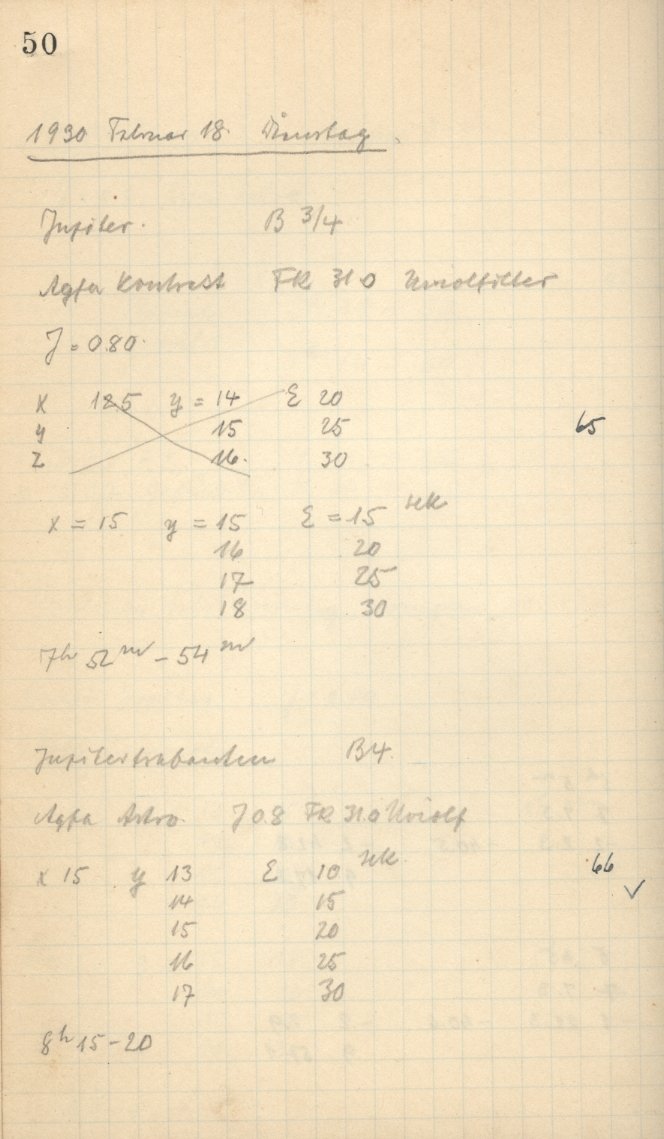 50
1930 Februar 18. Dienstag.
Jupiter. B 3/4
Agfa Kontrast FK 31 0 Uviolfilter
J = 0.80.
x 12.5 y = 14 E 20
y 15 25 65
z 16. 30
x = 15 y = 15 E = 15 sek
16 20
17 25
18 30
7h 52m – 54m
Jupitertrabanten B4.
Agfa Astro. J 0.8 FK 31.0 Uviolf
x 15 y 13 E 10 sek. 66 ✓
14 15
15 20
16 25
17 30
8h 15 – 20